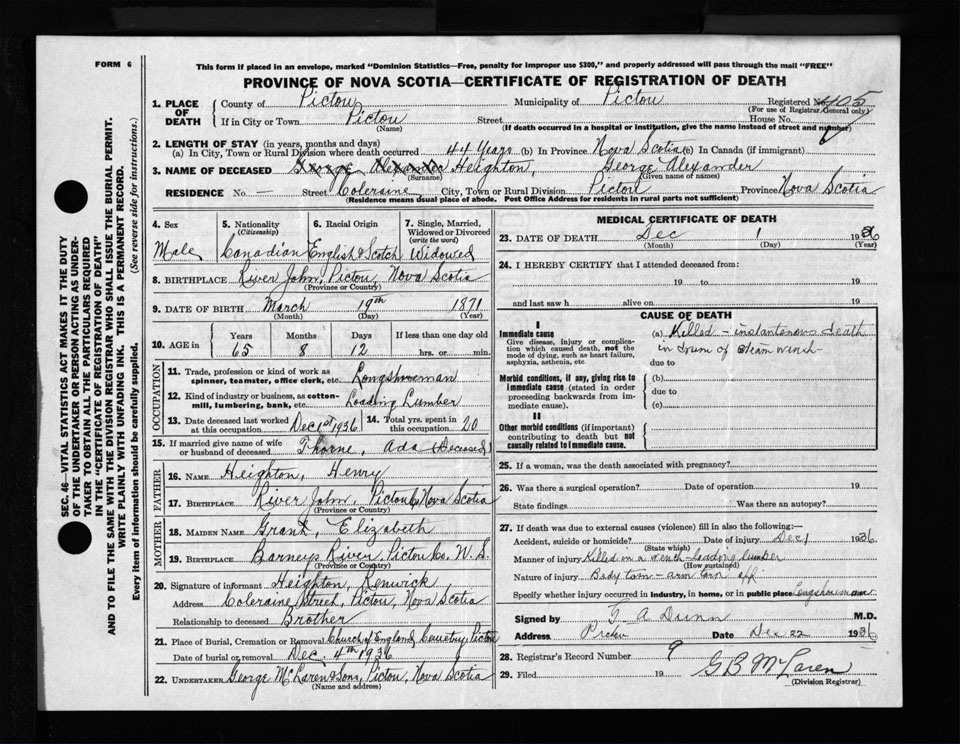 FORM 6
This form if placed in an envelope, marked "Dominion Statistics—Free, penalty for improper use $300," and properly addressed will pass through the mail "FREE"
PROVINCE OF NOVA SCOTIA—CERTIFICATE OF REGISTRATION OF DEATH
1. PLACE OF DEATH County of Pictou Municipality of Pictou Registered No. 405
(For use of Registrar General only)
If in City or Town Pictou Street House No.
(Name) (If death occurred in a hospital or institution, give the name instead of street and number)
2. LENGTH OF STAY (in years, months and days)
(a) In City, Town or Rural Division where death occurred 44 Years (b) In Province Nova Scotia (c) In Canada (if immigrant)
3. NAME OF DECEASED George Alexander Heighton, George Alexander
(Surname) (Given name or names)
RESIDENCE No. — Street Coleraine City, Town or Rural Division Pictou Province Nova Scotia
(Residence means usual place of abode. Post Office Address for residents in rural parts not sufficient)
4. Sex 5. Nationality (Citizenship) 6. Racial Origin 7. Single, Married, Widowed or Divorced (write the word)
Male Canadian English & Scotch Widowed
8. BIRTHPLACE River John, Pictou, Nova Scotia
(Province or Country)
9. DATE OF BIRTH March 19th 1871
(Month) (Day) (Year)
10. AGE in Years Months Days If less than one day old
65 8 12 hrs. or min.
OCCUPATION
11. Trade, profession or kind of work as spinner, teamster, office clerk, etc. Longshoreman
12. Kind of industry or business, as cotton-mill, lumbering, bank, etc. Loading Lumber
13. Date deceased last worked at this occupation Dec 1st 1936 14. Total yrs. spent in this occupation 20
15. If married give name of wife or husband of deceased Thorne, Ada (Deceased)
FATHER
16. NAME Heighton, Henry
17. BIRTHPLACE River John, Pictou Co, Nova Scotia
(Province or Country)
MOTHER
18. MAIDEN NAME Grant, Elizabeth
19. BIRTHPLACE Barneys River, Pictou Co. N.S.
(Province or Country)
20. Signature of informant Heighton, Renwick
Address Coleraine Street, Pictou, Nova Scotia
Relationship to deceased Brother
21. Place of Burial, Cremation or Removal Church of England Cemetry, Pictou
Date of burial or removal Dec. 4th 1936
22. UNDERTAKER George McLaren & Sons, Pictou, Nova Scotia
(Name and address)
MEDICAL CERTIFICATE OF DEATH
23. DATE OF DEATH Dec 1 1936
(Month) (Day) (Year)
24. I HEREBY CERTIFY that I attended deceased from:
19 to 19
and last saw h alive on 19
CAUSE OF DEATH
I
Immediate cause
Give disease, injury or complication which caused death, not the mode of dying, such as heart failure, asphyxia, asthenia, etc.
(a) Killed - instantaneous death
in drum of steam winch
due to
Morbid conditions, if any, giving rise to immediate cause (stated in order proceeding backwards from immediate cause).
(b)
due to
(c)
II
Other morbid conditions (if important) contributing to death but not causally related to immediate cause.
25. If a woman, was the death associated with pregnancy?
26. Was there a surgical operation? Date of operation 19
State findings Was there an autopsy?
27. If death was due to external causes (violence) fill in also the following:—
Accident, suicide or homicide? Date of injury Dec 1 1936
(State which)
Manner of injury Killed in a winch - loading lumber
(How sustained)
Nature of injury Body torn - arm torn off
Specify whether injury occurred in industry, in home, or in public place Longshoreman
Signed by G A Dunn M.D.
Address Pictou Date Dec 22 1936
28. Registrar's Record Number 9
29. Filed 19 G B McLaren
(Division Registrar)
SEC. 46—VITAL STATISTICS ACT MAKES IT THE DUTY
OF THE UNDERTAKER OR PERSON ACTING AS UNDER-
TAKER TO OBTAIN ALL THE PARTICULARS REQUIRED
IN THE "CERTIFICATE OF REGISTRATION OF DEATH"
AND TO FILE THE SAME WITH THE DIVISION REGISTRAR WHO SHALL ISSUE THE BURIAL PERMIT.
WRITE PLAINLY WITH UNFADING INK. THIS IS A PERMANENT RECORD.
Every item of information should be carefully supplied. (See reverse side for instructions.)